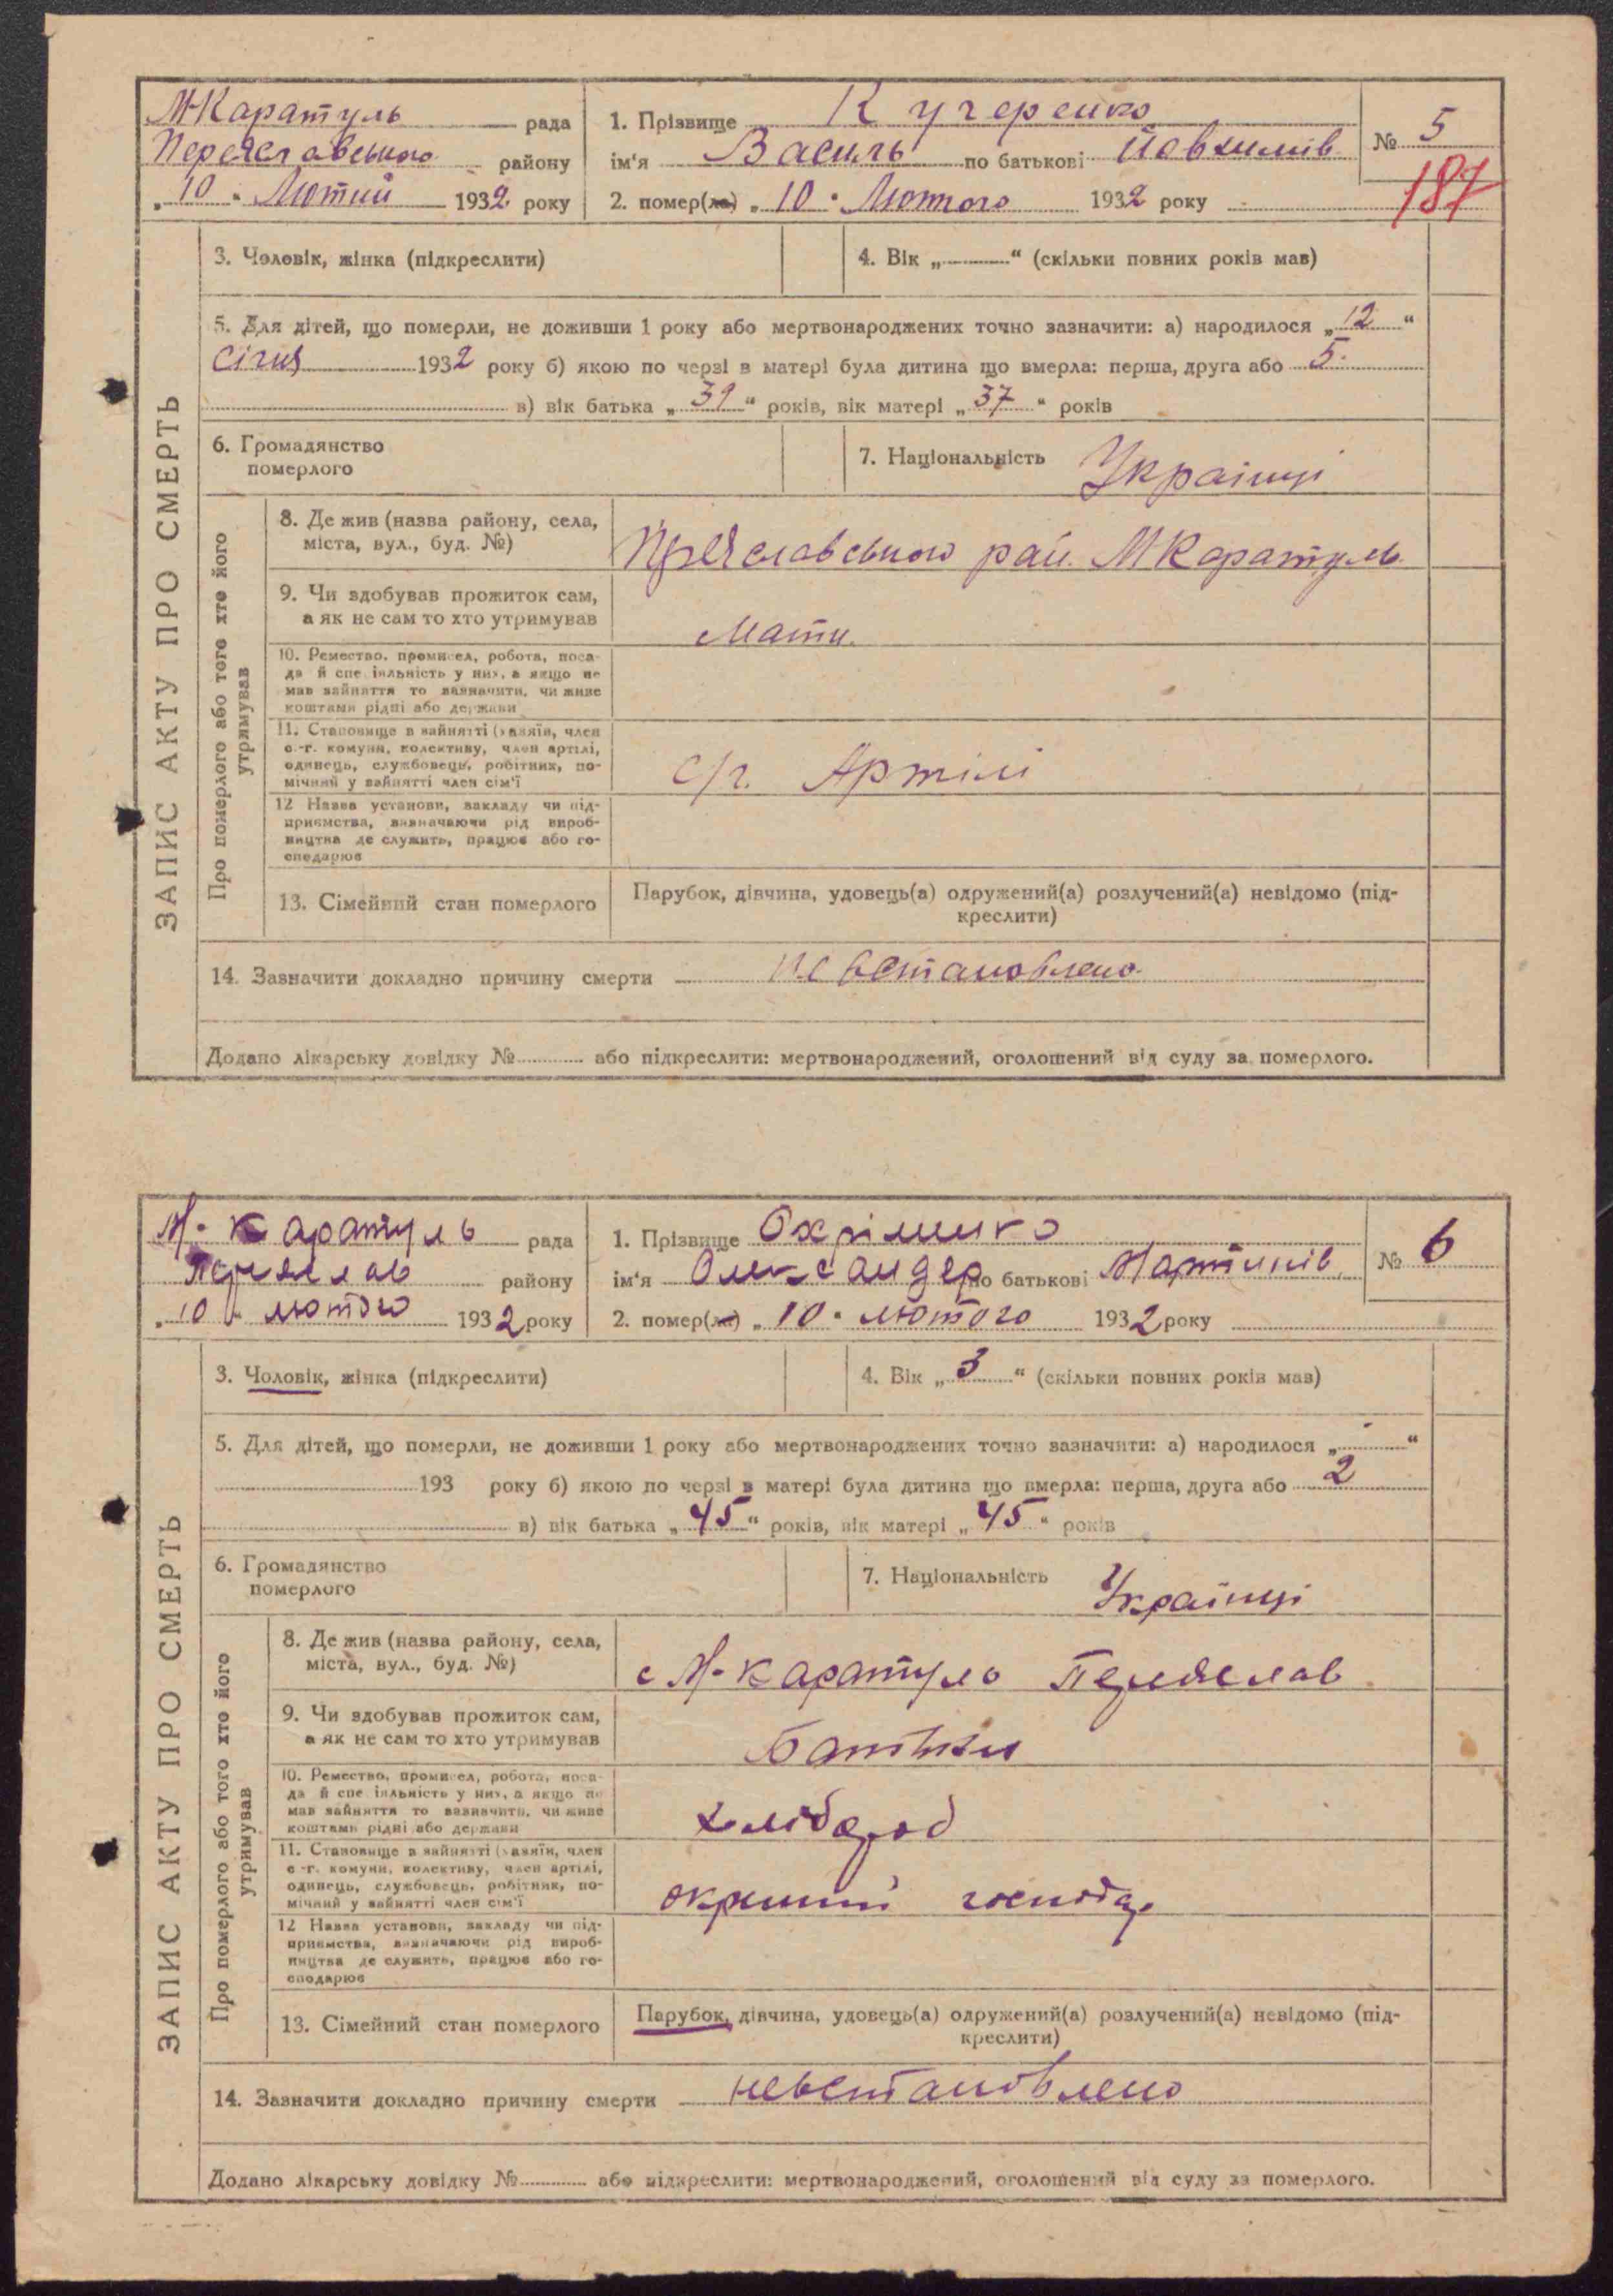 М-Каратуль рада
Переяславського району
„10“ Лютий 1932 року
1. Прізвище Кучеренко
ім'я Василь по батькові Йовхимів
2. помер(ла) „10“ Лютого 1932 року
№ 5
187
ЗАПИС АКТУ ПРО СМЕРТЬ
3. Чоловік, жінка (підкреслити)
4. Вік „ “ (скільки повних років мав)
5. Для дітей, що померли, не доживши 1 року або мертвонароджених точно зазначити: а) народилося „12“
Січня 1932 року б) якою по черзі в матері була дитина що вмерла: перша, друга або 5.
в) вік батька „39“ років, вік матері „37“ років
6. Громадянство
померлого
7. Національність Українці
Про померлого або того хто його
утримував
8. Де жив (назва району, села,
міста, вул., буд. №)
Переяславського рай. МКаратуль.
9. Чи здобував прожиток сам,
а як не сам то хто утримував
Мати.
10. Ремество, промисел, робота, поса-
да й спеціяльність у них, а якщо не
мав зайняття то зазначити, чи живе
коштами рідні або держави
11. Становище в зайнятті (хазяїн, член
с.-г. комуни, колективу, член артілі,
одинець, службовець, робітник, по-
мічний у зайнятті член сім'ї
с/г. Артілі
12 Назва установи, закладу чи під-
приємства, визначаючи рід вироб-
ництва де служить, працює або го-
сподарює
13. Сімейний стан померлого
Парубок, дівчина, удовець(а) одружений(а) розлучений(а) невідомо (під-
креслити)
14. Зазначити докладно причину смерти не встановлено.
Додано лікарську довідку № або підкреслити: мертвонароджений, оголошений від суду за померлого.
М-Каратуль рада
Переяслав району
„10“ лютого 1932 року
1. Прізвище Охріменко
ім'я Олександер по батькові Мартинів
2. помер(ла) „10“ лютого 1932 року
№ 6
ЗАПИС АКТУ ПРО СМЕРТЬ
3. Чоловік, жінка (підкреслити)
4. Вік „3“ (скільки повних років мав)
5. Для дітей, що померли, не доживши 1 року або мертвонароджених точно зазначити: а) народилося „-“
193 року б) якою по черзі в матері була дитина що вмерла: перша, друга або 2
в) вік батька „45“ років, вік матері „45“ років
6. Громадянство
померлого
7. Національність Українці
Про померлого або того хто його
утримував
8. Де жив (назва району, села,
міста, вул., буд. №)
с М-Каратуль Переяслав
9. Чи здобував прожиток сам,
а як не сам то хто утримував
Батьки
10. Ремество, промисел, робота, поса-
да й спеціяльність у них, а якщо не
мав зайняття то зазначити, чи живе
коштами рідні або держави
хлібороб
11. Становище в зайнятті (хазяїн, член
с.-г. комуни, колективу, член артілі,
одинець, службовець, робітник, по-
мічний у зайнятті член сім'ї
окремий господар
12 Назва установи, закладу чи під-
приємства, визначаючи рід вироб-
ництва де служить, працює або го-
сподарює
13. Сімейний стан померлого
Парубок, дівчина, удовець(а) одружений(а) розлучений(а) невідомо (під-
креслити)
14. Зазначити докладно причину смерти невстановлено
Додано лікарську довідку № або підкреслити: мертвонароджений, оголошений від суду за померлого.